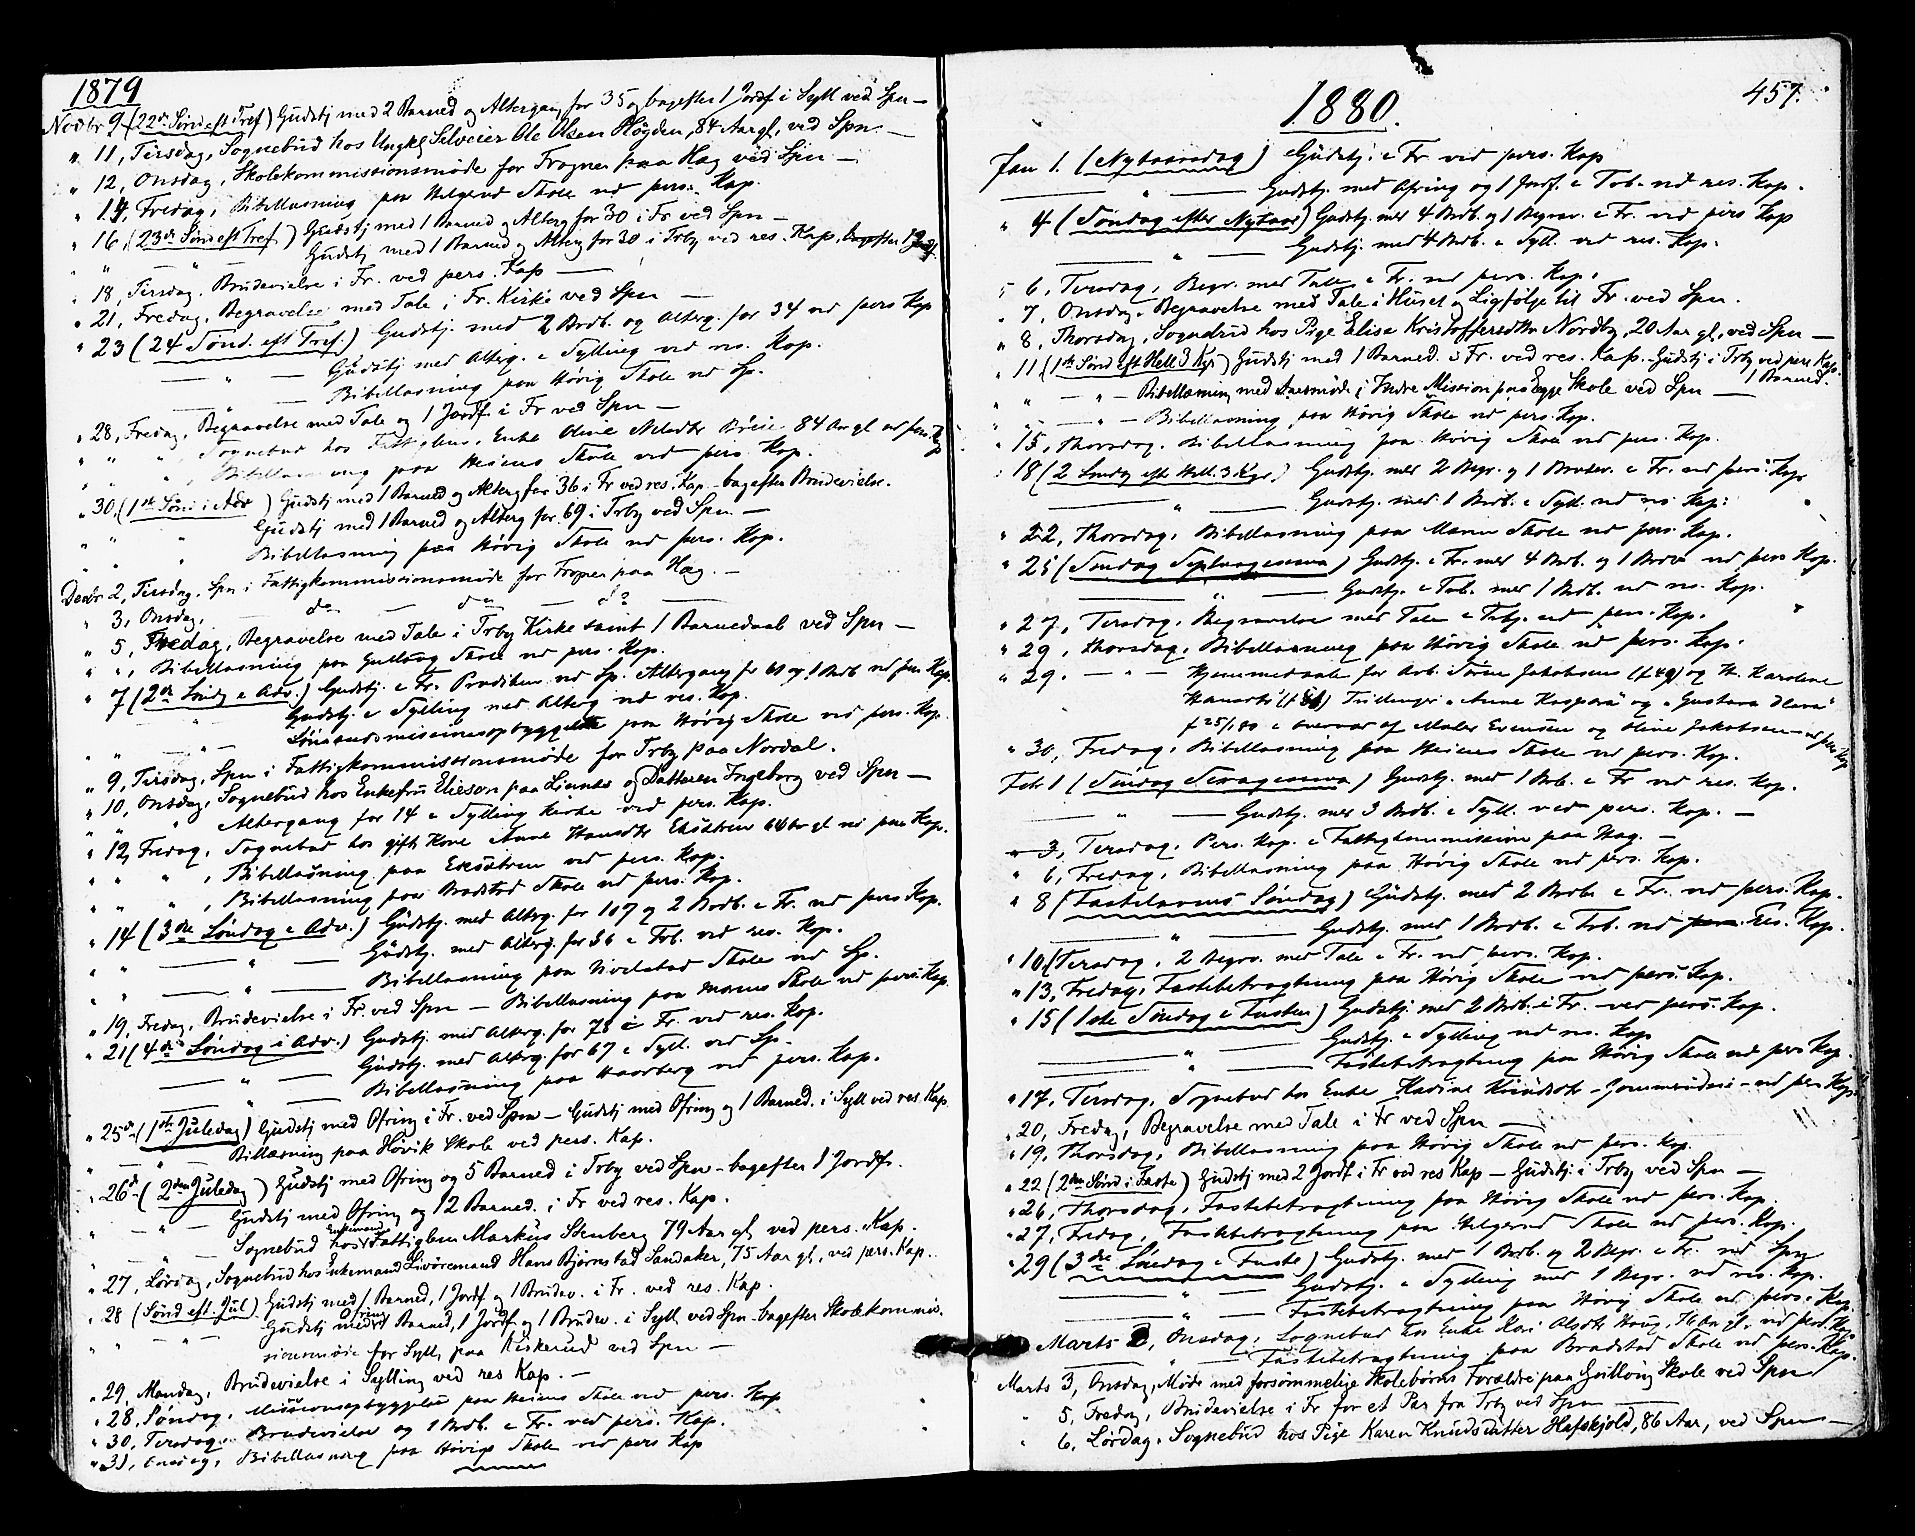 1879
Novbr 9 (22de Sønd eft Tref) Gudstj med 2 Barned og Altergang for 35 og bagefter 1 Jordf i Syll ved Spn —
" 11, Tirsdag, Sognebud hos Ungkl Selveier Ole Olsen Høgden, 84 Aar gl, ved Spn. —
" 12, Onsdag, Skolekommissionsmøde for Frogner paa Hæg ved Spn —
" 14, Fredag, Bibellæsning paa Helgerud Skole ved pers. Kap.
" 16, (23de Sønd eft Tref.) Gudstj med 1 Barned og Alterg for 30 i Fr ved Spn —
" " — " — Gudstj med 1 Barned og Alterg for 30 i Trby ved res. Kap, bagefter 1 Jordf.
" 18, Tirsdag. Brudevielse i Fr. ved pers. Kap —
" 21, Fredag, Begravelse med Tale i Fr. Kirke ved Spn —
" 23 (24 Sønd. eft Tref.) Gudstj. med 2 Brdb. og Alterg. for 34 ved pers Kap
— " — Gudstj med Alterg. i Sylling ved res. Kap.
— " — Bibellæsning paa Høvig Skole ved Sp.
" 28, Fredag, Begravelse med Tale og 1 Jordf i Fr ved Spn —
" " " Sognebud hos Fattiglem, Enke Oline 84 Aar gl ved pers. Kap
" " ", Bibellæsning paa Heiens Skole ved pers. Kap.
" 30. (1ste Sønd i Adv) Gudstj med 1 Barned og Alterg for 36 i Fr ved res. Kap – bagefter Brudevielse.
" " " Gudstj med 1 Barned og Alterg for 69 i Trby ved Spn —
" " " Bibellæsning paa Høvig Skole ved pers. Kap.
Decbr 2, Tirsdag, Spn i Fattigkommissionsmøde for Frogner paa Hæg. —
" 3, Onsdag, — do — do — do
" 5, Fredag, Begravelse med Tale i Trby Kirke samt 1 Barnedaab ved Spn —
" ", Bibellæsning paa Gullaug Skole ved pers. Kap.
" 7 (2den Sønd i Adv.) Gudstj. i Fr. Prædiken ved Sp. Altergang for 61 og 1 Brdb ved pers Kap.
" Gudstj. i Sylling med Alterg ved res. Kap.
" — " — paa Høvig Skole ved pers. Kap.
" 9, Tirsdag, Spn i Fattigkommissionsmøde for Trby paa Nordal.
" 10, Onsdag, Sognebud hos Enkefru Elieson paa Liernes og Datteren Ingeborg ved Spn —
" " " Altergang for 14 i Sylling Kirke ved pers. Kap.
" 12, Fredag, Sognebud hos gift Kone Anne Hansdtr Eksætren 64 Aar gl ved pers Kap.
" " " , Bibellæsning paa Eksætren ved pers. Kap.
" " " , Bibellæsning paa Bradstad Skole ved pers. Kap.
" 14 (3de Søndag i Adv.) Gudstj. med Alterg. for 107 og 2 Brdb. i Fr. ved pers Kap.
" " — " — Gudstj. med Alterg. for 36 i Trb. ved res. Kap.
" " — " — Bibellæsning paa Skole ved Sp.
" 19, Fredag, Brudevielse i Fr. ved Spn — Bibellæsning paa Skole ved pers. Kap.
" 21 (4de Søndag i Adv.) Gudstj. med Alterg. for 75 i Fr. ved res. Kap.
— " — Gudstj. med Alterg. for 67 i Syll. ved Sp.
— " — Bibellæsning paa Haarberg ved pers. Kap.
" 25de (1ste Juledag) Gudstj med Ofring i Fr. ved Spn — Gudstj med Ofring og 1 Barned. i Syll ved res. Kap
" — " — Billæsning paa Høvik Skole ved pers. Kap.
" 26de (2den Juledag) Gudstj med Ofring og 5 Barned i Trby ved Spn – bagefter 1 Jordf.
— " — Gudstj med Ofring og 12 Barned. i Fr ved res. Kap.
" — " — Sognebud hos Enkemand Fattiglem Markus Stenberg 79 Aar gl, ved pers. Kap.
" 27, Lørdag, Sognebud hos Enkemand Livøremand Hans Bjørnstad Sandaker, 75 Aar gl, ved pers. Kap.
" 28 (Sønd eft. Jul) Gudstj med 1 Barned, 1 Jordf og 1 Brudev. i Fr. ved res. Kap
" " — " — Gudstj med Ofring Barned, 1 Jordf og 1 Brudev. i Syll, ved Spn – bagefter Skolekommis.
sionsmøde for Syll, paa Kiskerud ved Spn —
" 29, Mandag, Brudevielse i Sylling ved res Kap. —
" 28, Søndag, Missionsopbyggelse paa Heiens Skole ved pers. Kap
" 30, Tirsdag. Brudevielse og 1 Brdb. i Fr. ved pers. Kap.
" 31, Onsdag, Bibellæsning paa Høvigs Skole ved pers Kap
457.
1880.
Jan 1. (Nytaarsdag) Gudstj. i Fr ved pers. Kap
— " — Gudstj. med Ofring og 1 Jordf. i Trb. ved res. Kap.
" 4 (Søndag efter Nytaar) Gudstj. med 4 Brdb. og 1 Begrav. i Fr. ved pers Kap
— " — Gudstj. med 4 Brdb. i Syll. ved res. Kap.
" 6, Tirsdag, Begr. med Tale i Fr. ved pers. Kap.
" 7, Onsdag. Begravelse med Tale i Huset og Ligfølge til Fr. ved Spn.
" 8, Thorsdag, Sognebud hos Pige Elise Kristoffersdtr Nordby, 20 Aar gl, ved Spn —
" 11 (1ste Sønd eft Hell 3 Kgr) Gudstj med 1 Barned. i Fr. ved res. Kap. Gudstj i Trby ved pers Kap.
1 Barned.
" " — " — Bibellæsning med Aarsmøde i Indre Mission paa Egge Skole ved Spn —
" " — " — Bibellæsning paa Høvig Skole ved pers. Kap.
" 15, Thorsdag. Bibellæsning paa Høvig Skole ved pers. Kap.
" 18 (2 Søndg eft Hell. 3 Kgr.) Gudstj. med 2 Begr. og 1 Brudev. i Fr. ved pers. Kap
— " — Gudstj. med 1 Brdb. i Syll. ved res. Kap.
" 22, Thorsdag, Bibellæsning paa Skole ved pers. Kap.
" 25 (Søndag Septuagesima) Gudstj. i Fr. med 4 Brdb. og 1 Brdv ved pers Kap.
— " — Gudstj. i Trb. med 1 Brdb. ved res. Kap.
" 27, Tirsdag, Begravelse med Tale i Trby. ved pers. Kap.
" 29, Thorsdag, Bibellæsning paa Høvig Skole ved pers. Kap.
" 29. — " — Hjemmedaab for Arb. Søren Jakobsens (f 49) og H. Karoline
Hansdtr's Trillinger "Anne Kaspara" og "Gustava Oleva"
f 25/1 80 i Overvær af Maler Evensen og Oline Jakobsen – ved pers Kap
" 30, Fredag, Bibellæsning paa Heiens Skole ved pers. Kap.
Feb 1 (Søndag Sexagesima) Gudstj. med 1 Brdb. i Fr ved res. Kap.
— " — Gudstj. med 3 Brdb. i Syll. ved pers. Kap. —
" 3, Tirsdag, Pers. Kap. i Fattigkommission paa Hæg. —
" 6, Fredag, Bibellæsning paa Høvig Skole ved pers. Kap.
" 8 (Fastelavns Søndag) Gudstj. med 2 Brdb. i Fr. ved pers. Kap.
— " — Gudstj. med 1 Brdb. i Trb. ved pers. res. Kap.
" 10, Tirsdag, 2 Begrv. med Tale i Fr. ved pers. Kap.
" 13, Fredag, Fastebetragtning paa Høvig Skole ved pers. Kap.
" 15 (1ste Søndag i Fasten) Gudstj. med 2 Brdb. i Fr. – ved pers. Kap.
— " — Gudstj. i Sylling ved res. Kap
— " — Fastebetragtning paa Høvig Skole ved pers Kap.
" 17, Tirsdag, Sognebud hos Enke Karine Knudsdtr – – ved pers Kap.
" 20, Fredag, Begravelse med Tale i Fr ved Spn —
" 19, Thorsdag, Bibellæsning paa Høvig Skole ved pers. Kap.
" 22 (2den Sønd i Faste) Gudstj med 2 Jordf i Fr ved res Kap — Gudstj i Trby ved Spn —
" 26, Thorsdag, Fastebetragtning paa Høvig Skole ved pers. Kap.
" 27, Fredag, Fastebetragtning paa Helgerud Skole ved pers. Kap.
" 29 (3de Søndag i Faste) Gudstj. med 1 Brdb. og 2 Begr. i Fr. ved Spn
— " — Gudstj. i Sylling med 1 Begr. ved res. Kap.
— " — Fastebetragtning paa Høvig Skole ved pers. Kap.
Marts 3, Onsdag, Sognebud hos Enke Kari Olsdtr Haug, 76 Aar gl, ved pers. Kap
— " — Fastebetragtning paa Bradstad Skole ved pers. Kap.
Marts 3, Onsdag, Møde med forsømmelige Skolebørns Forældre paa Gulloug Skole ved Spn
" 5, Fredag, Brudevielse i Fr for et Par fra Trby ved Spn —
" 6, Lørdag. Sognebud hos Pige Karen Knudsdatter Hafskjold, 86 Aar, ved Spn —